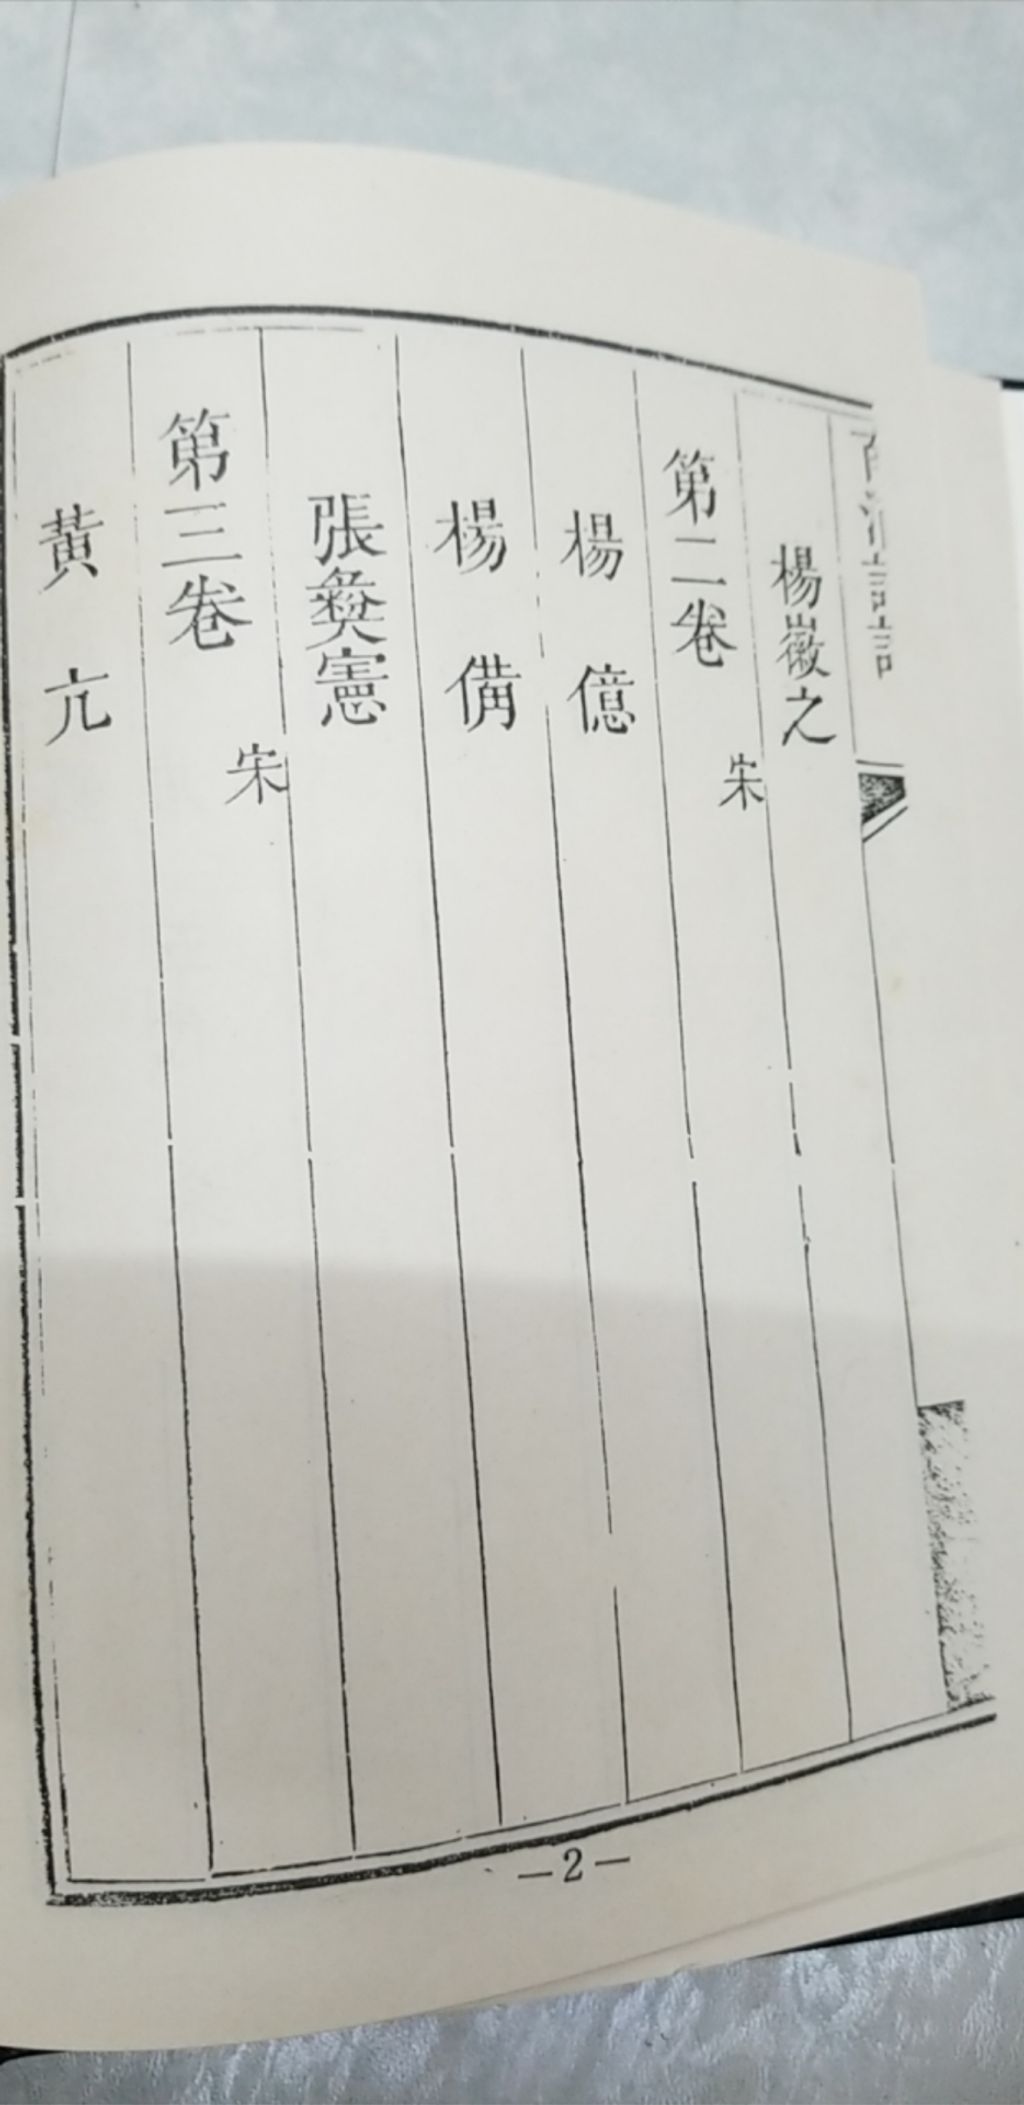 楊徽之
第二卷
宋
楊億
楊備
張彝憲
第三卷
宋
黃亢
—2—